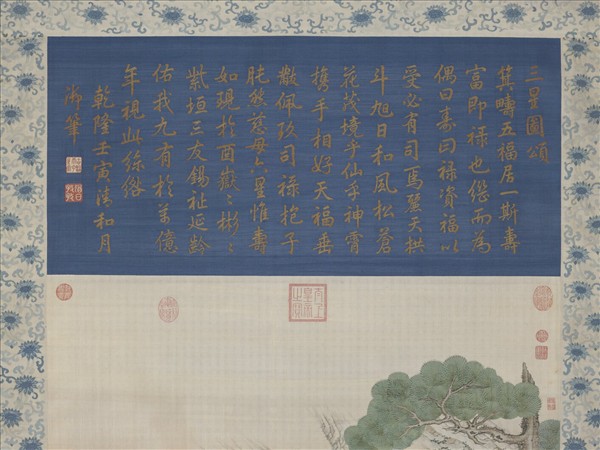 三星圖頌
箕疇五福居一斯壽
富即祿也繼而為
偶曰壽曰祿資福以
受必有司焉麗天拱
斗旭日和風松蒼
花茂境乎仙乎神霄
攜手相好天福垂
黻佩玖司祿抱子
肫然慈母六星惟壽
如現於酉嶽〻彬〻
紫垣三友錫祉延齡
佑我九有於萬億
年視此絲綌
乾隆壬寅清和月
御筆
猶日孜孜
太上皇帝之寶